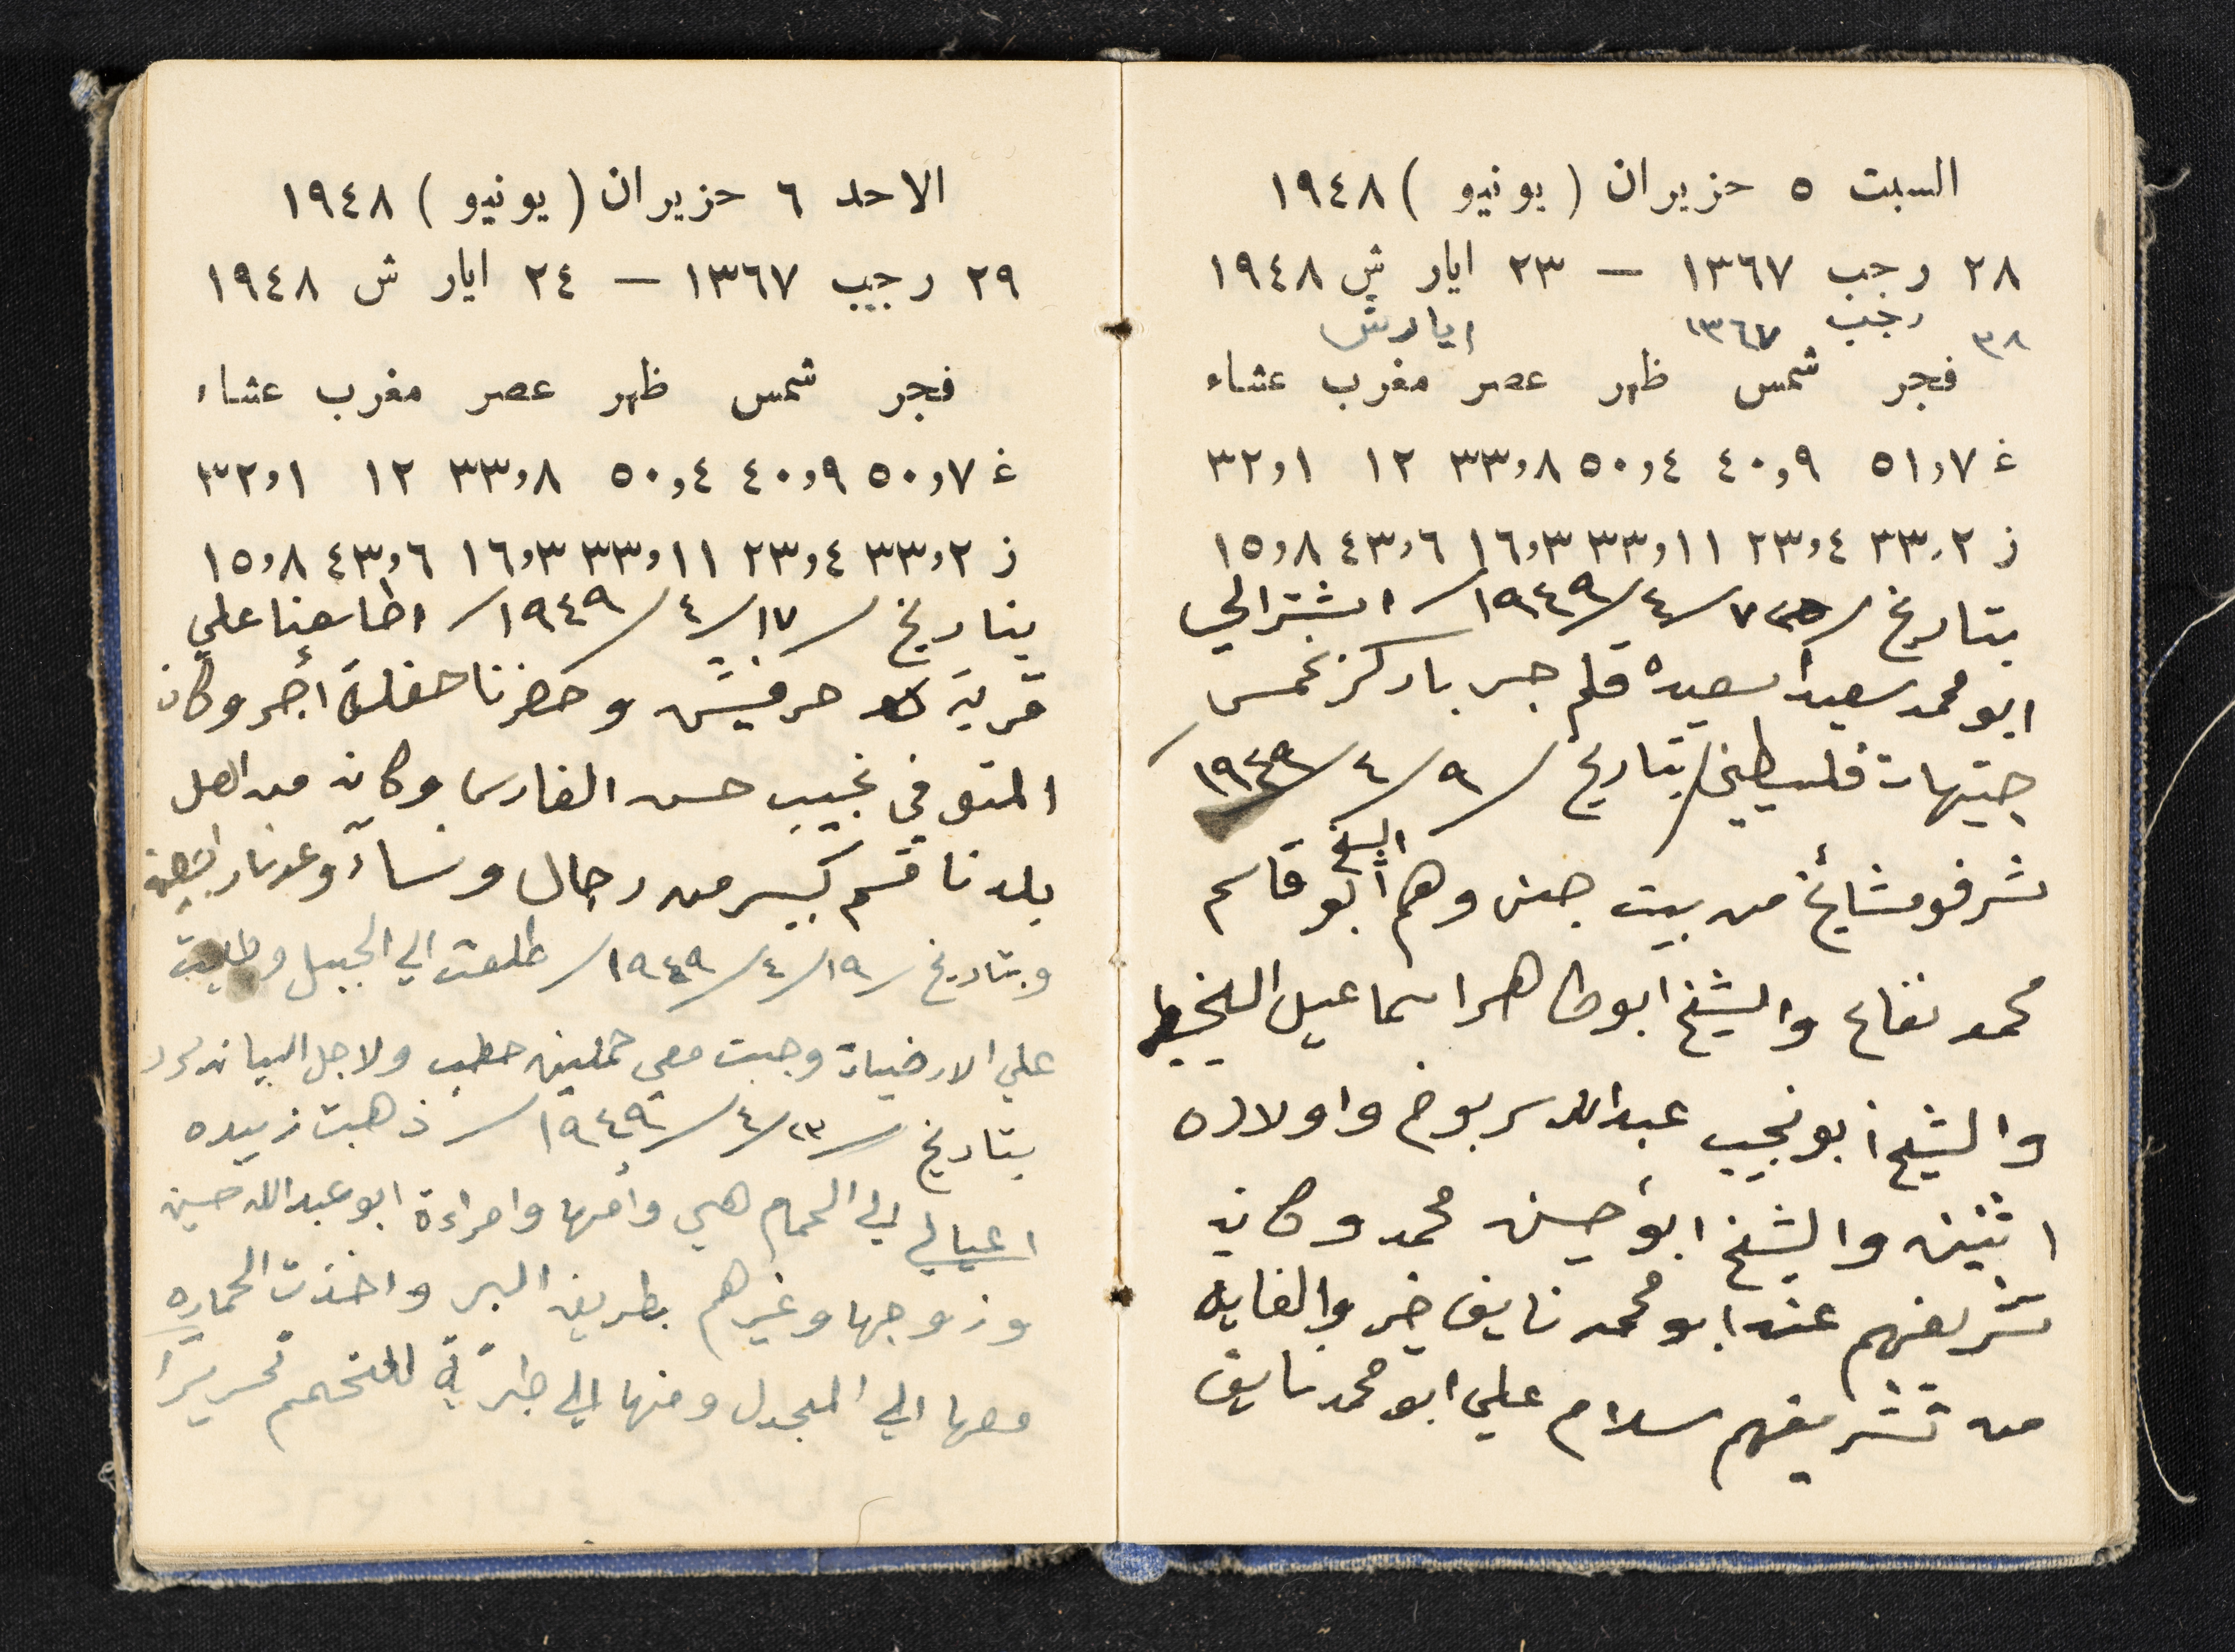 السبت ٥ حزيران (يونيو) ١٩٤٨
٢٨ رجب ١٣٦٧ – ٢٣ ايار ش ١٩٤٨
٣٨ رجب ١٣٦٧ ايار ش
فجر شمس ظهر عصر مغرب عشاء
غ ٥١,٧ ٤٠,٩ ٥٠,٤ ٣٣,٨ ١٢ ٣٢,١
ز ٣٣,٢ ٢٣,٤ ٣٣,١١ ١٦,٣ ٤٣,٦ ١٥,٨
بتاريخ / ٧/٤/١٩٤٩/ اشترالي
ابو محمد سعيد اسعيده قلم حبر باركز بخمس
جنيهات فلسطيني/ بتاريخ / ٩/٤/١٩٤٩/
شرفو مشائخ من بيت جن وهم الشيخ أبو قاسم
محمد نفاع والشيخ ابو طاهر اسماعيل الخيط
والشيخ أبو نجيب عبدالله سربوخ واولاده
اثنين والشيخ ابو حسين محمد وكان
تشريفهم عند ابو محمد نايف خير والغايه
من تشريفهم سلام علي ابو محمد نايف
الاحد ٦ حزيران (يونيو) ١٩٤٨
٢٩ رجب ١٣٦٧ – ٢٤ ايار ش ١٩٤٨
فجر شمس ظهر عصر مغرب عشاء
غ ٥٠,٧ ٤٠,٩ ٥٠,٤ ٣٣,٨ ١٢ ٣٢,١
ز ٣٣,٢ ٢٣,٤ ٣٣,١١ ١٦,٣ ٤٣,٦ ١٥,٨
بتاريخ / ١٧/٤/١٩٤٩/ علي
قرية حرفيش وحضرنا حفلة أجر وكان
المتوفي نجيب حسن الفارس وكان من اهل
بلدنا قسم كبير من رجال ونساء وعدنا
وبتاريخ / ١٩/٤/١٩٤٩/ طلعت الي الجبل
علي الارضيات وجبت معي حملين حطب ولاجل البيان
بتاريخ / ٢٣/٤/١٩٤٩/ ذهبت زبيده
اعيالي الي الحمام هي وأمها وامراءة ابو عبدالله حسين
وزوجها وغيرهم بطريق البر واخذت الحماره
معها الي المجدل ومنها الي طبريّة للتحمم تحريراً